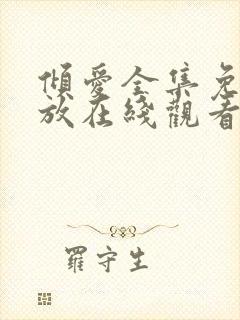 傾愛全集免
放在綫觀看
羅守生